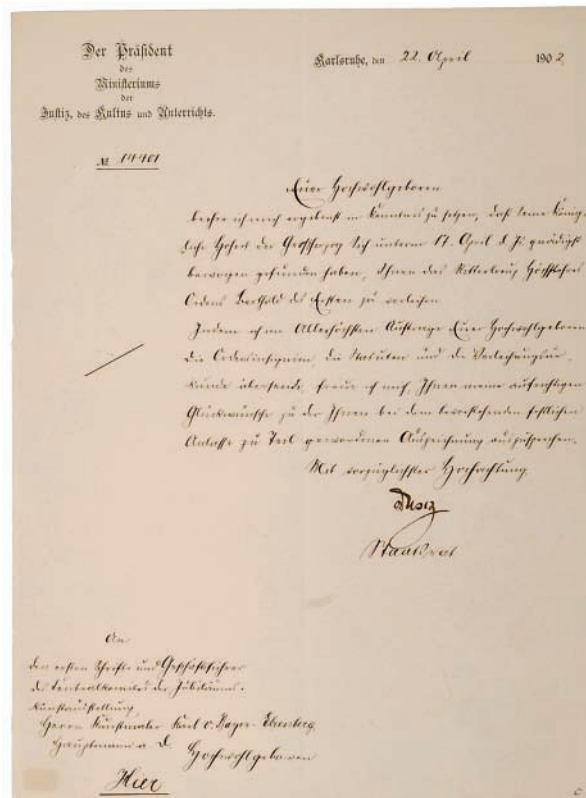 Der Präsident
des
Ministeriums
der
Justiz, des Kultus und Unterrichts.
Karlsruhe, den 22. April 1902
№ 14401
Euer Hochwohlgeboren
beehre ich mich ergebenst in Kenntnis zu setzen, daß Seine König-
liche Hoheit der Großherzog Sich unterm 17. April d. Js. gnädigst
bewogen gefunden haben, Ihnen das Ritterkreuz Höchstihres
Ordens Berthold des Ersten zu verleihen.
Indem ich im Allerhöchsten Auftrage Euer Hochwohlgeboren
die Ordensinsignien, die Statuten und die Verleihungsur-
kunde übersende, freue ich mich, Ihnen meine aufrichtigen
Glückwünsche zu der Ihnen bei dem bevorstehenden festlichen
Anlasse zu Teil gewordenen Auszeichnung auszusprechen.
Mit vorzüglichster Hochachtung
Staatsrat
An
den ersten Schrift- und Geschäftsführer
des Centralkomités der Jubiläums-
kunstausstellung
Herrn Kunstmaler Karl v. Bayer-Ehrenberg,
Hauptmann a. D.
Hochwohlgeboren
Hier